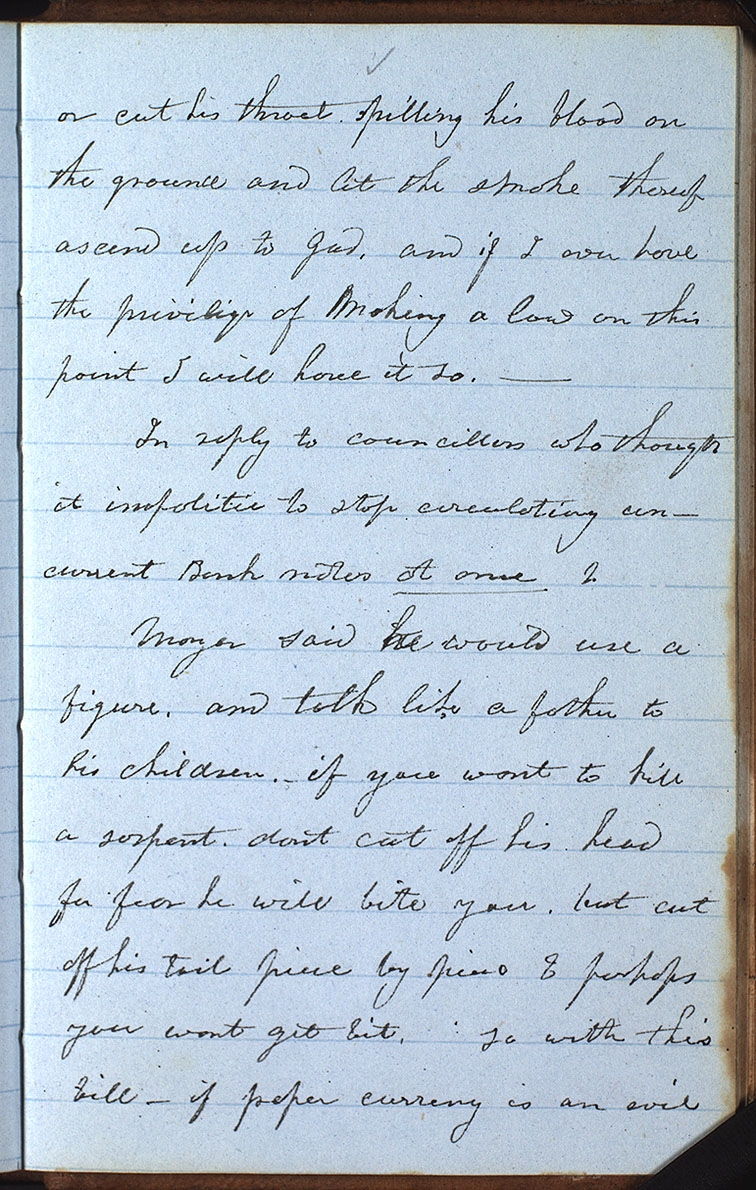 or cut his throat. spilling his blood on
the ground and let the smoke thereof
ascend up to God, and if I ever have
the privilige of Making a law on this
point I will have it so. —
In reply to councillors who thought
it impolitic to stop circulating un-
current Bank notes at once
Mayor said he would use a
figure. and talk like a father to
his children. - if you want to kill
a serpent. dont cut off his head
for fear he will bite you. but cut
off his tail piece by piece & perhaps
you wont get bit. so with this
bill - if paper currency is an evil